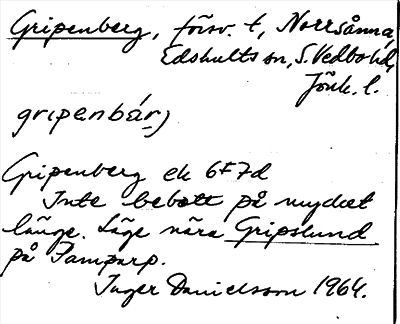 Gripenberg, försv. t, Norrsånna,
Edshults sn, S. Vedbo hd,
Jönk. l.
gripenbár)
Gripenberg ek 6F7d
Inte bebott på mycket
länge. Låge nära Gripslund
på Pamparp.
Inger Danielsson 1964.